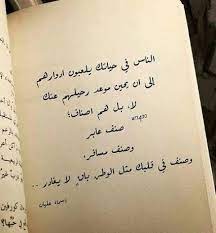 الناس في حياتك يلعبون ادوارهم
إلى ان يحين موعد رحيلهم عنك
لا، بل هم اصناف؛
صنف عابر
وصنف مسافر،
وصنف في قلبك مثل الوطن باقٍ لا يغادر ..